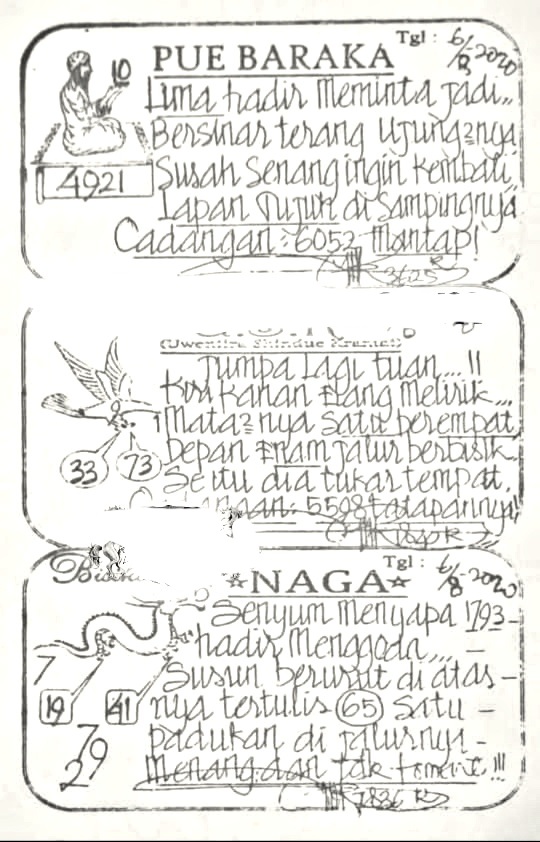 PUE BARAKA
Tgl : 6/8-2020
10
4921
Lima hadir Meminta jadi..
Bersinar terang Ujung2nya
Susah Senang ingin Kembali
Lapan Tujuh di Sampingnya
Cadangan : 6052 Mantap!
3625
(Uwentira Sirindue Kramat)
Jumpa Lagi tuan....!!
Kiri Kanan Elang Melirik...
Mata2nya Satu berempat,
Depan Enam jalur berbisik.
Se itu dia tukar tempat.
33
73
5508
NAGA
Tgl : 6/8-2020
Senyum Menyapa 1793-
hadir Menggoda,,, -
Susun berurut di atas-
nya tertulis 65 Satu -
padukan di jalurnya -
Menang dan tak !!!
7
19
41
79
2
7836